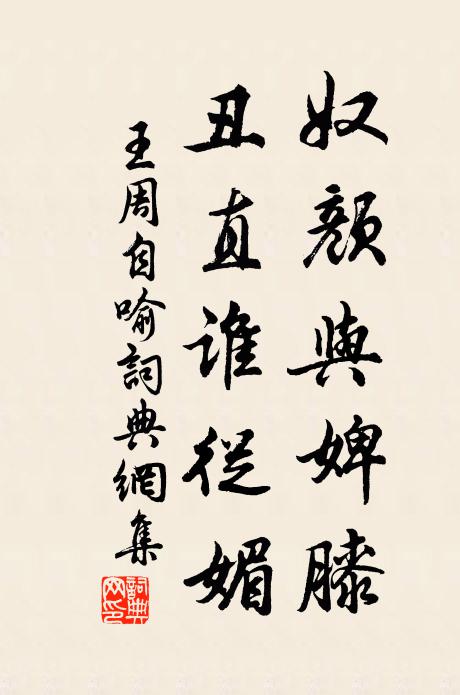 奴顔與婢膝
丑直誰從媚
王周自喻詞典網集
詞典網印